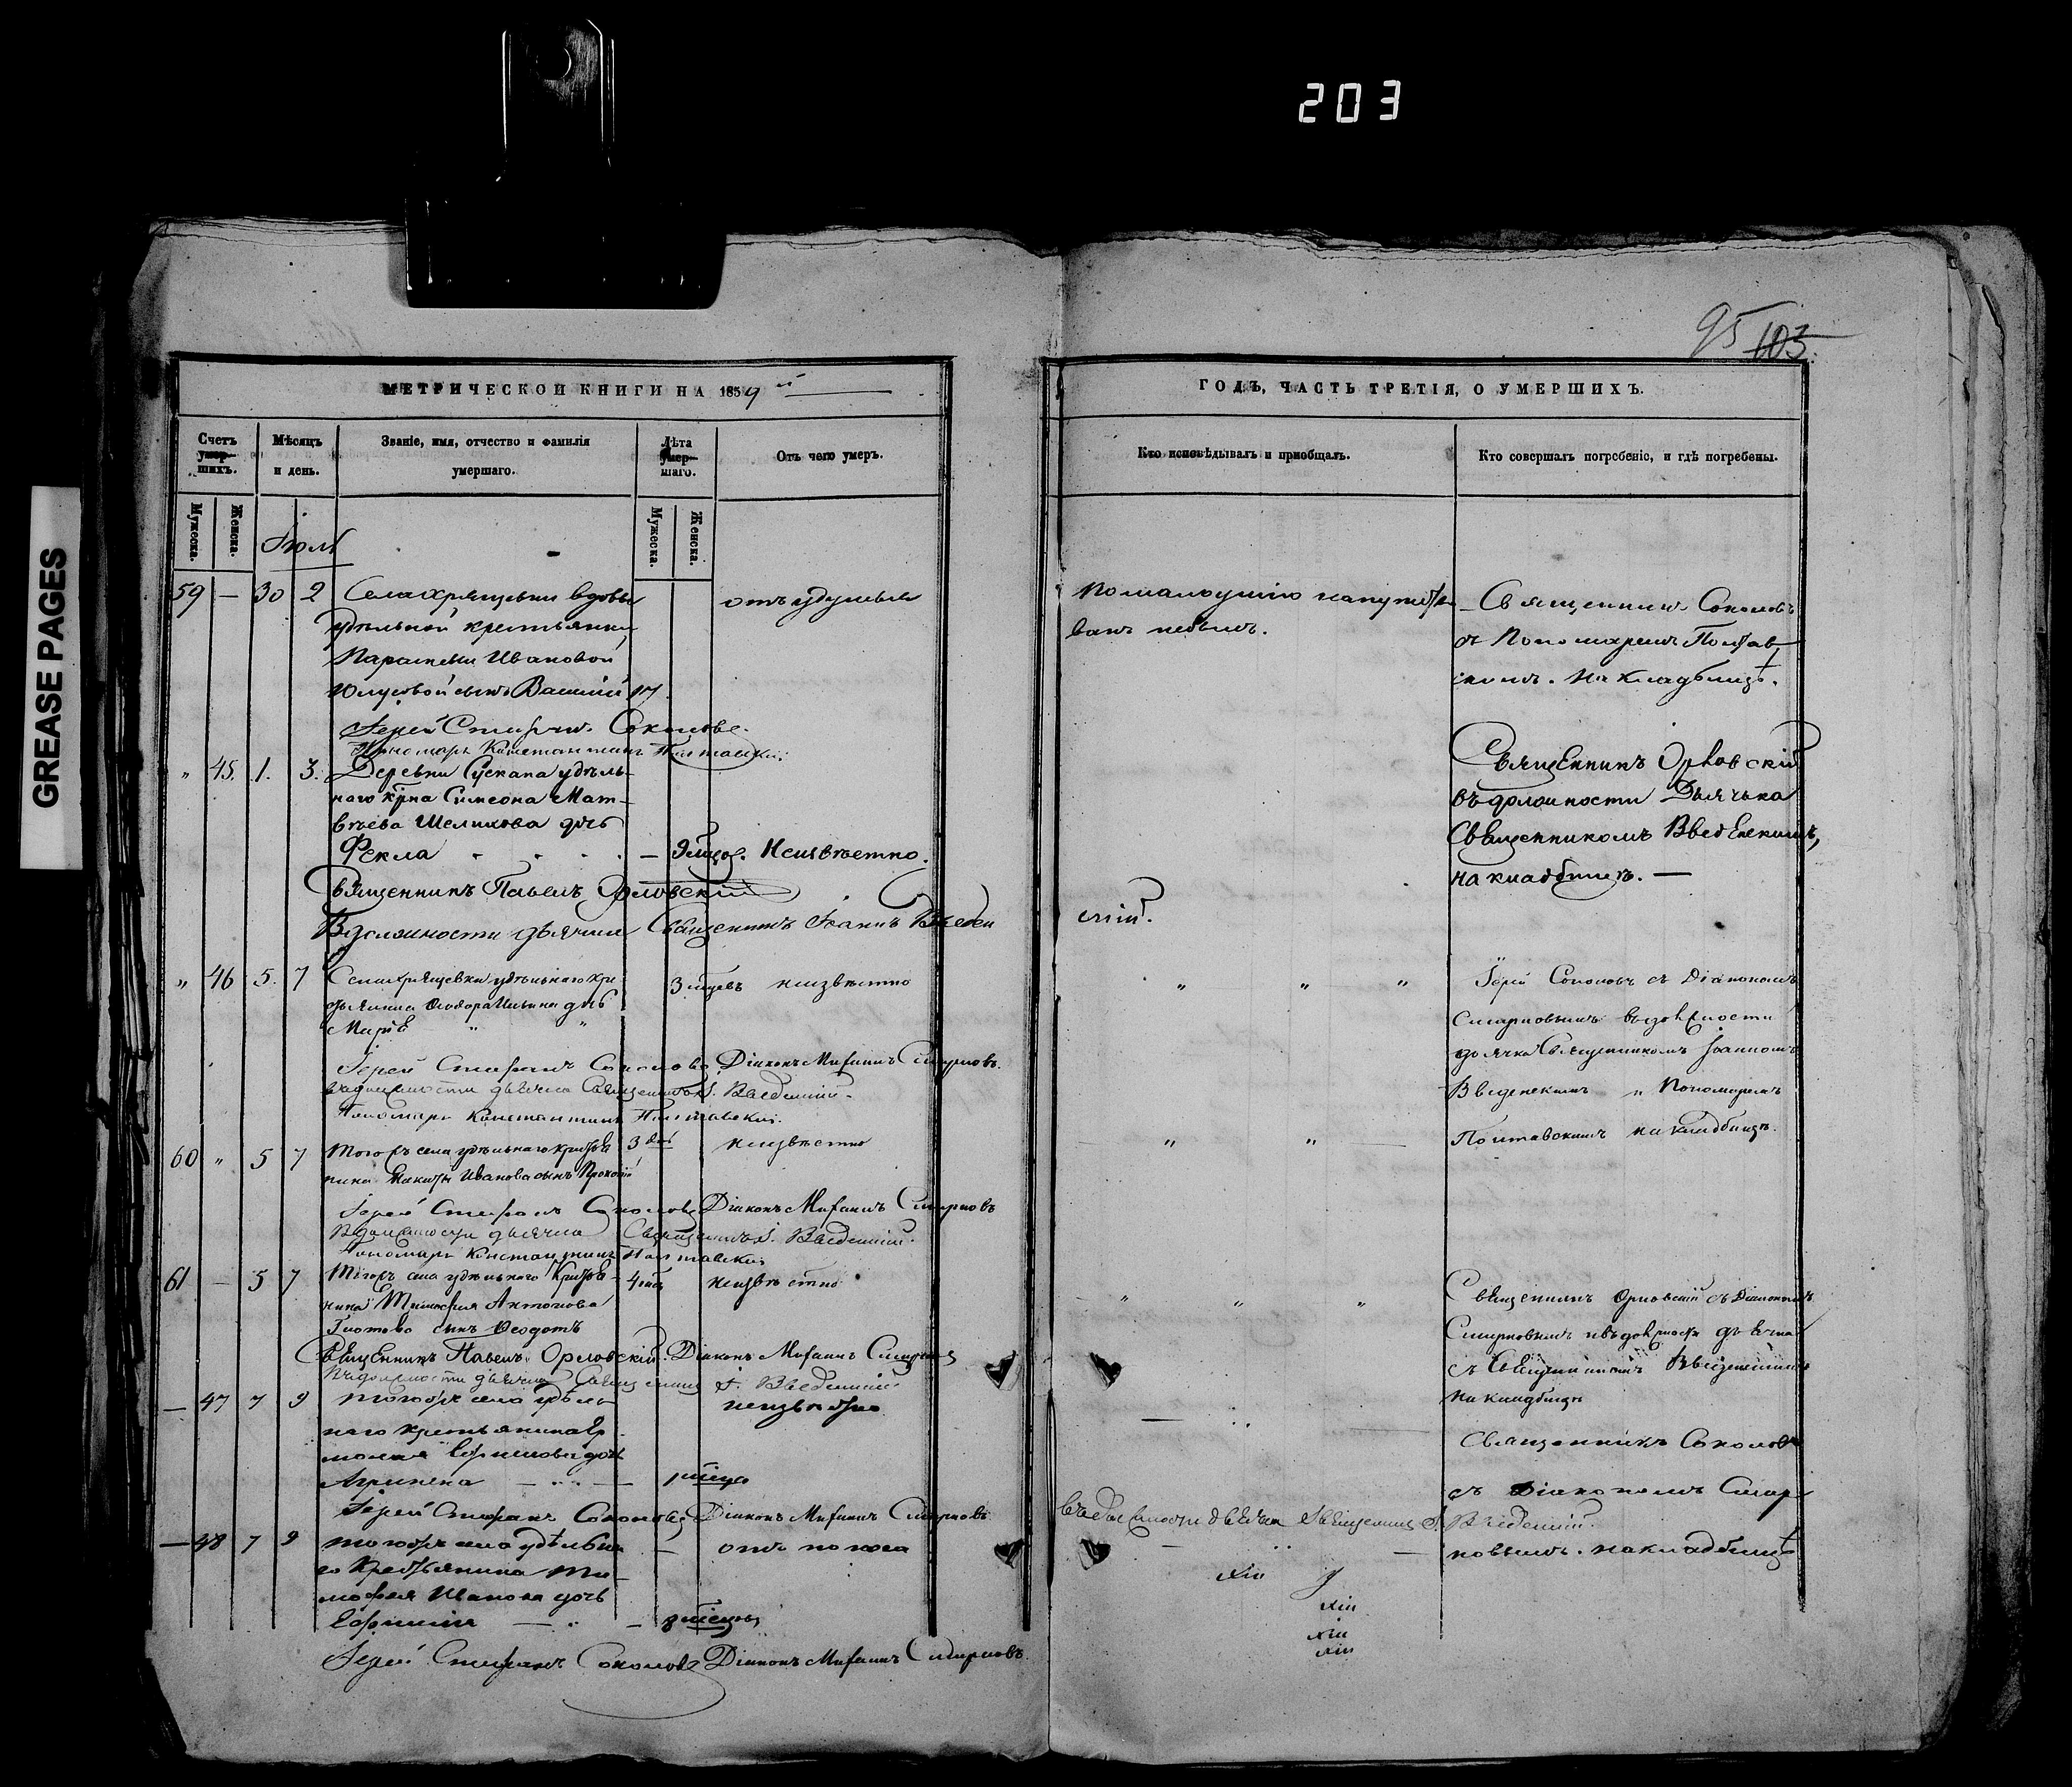 203
GREASE PAGES
95 103.
МЕТРИЧЕСКОЙ КНИГИ НА 1859й
ГОДЪ, ЧАСТЬ ТРЕТІЯ, О УМЕРШИХЪ.
Счетъ умершихъ.
Мѣсяцъ и день.
Званіе, имя, отчество и фамилія умершаго.
Лѣта умершаго.
Отъ чего умеръ.
Кто исповѣдывалъ и пріобщалъ.
Кто совершалъ погребеніе, и гдѣ погребены.
Мужеска.
Женска.
Мужеска.
Женска.
Іюль
59 — 30 2
вдовы
удѣльной крестьянки
Параскевы Ивановой
сынъ Василій
отъ удушья
По малоумію
Священникъ Соколовъ
съ Пономаремъ Полтав
скимъ. На кладбищѣ.
Іерей Стефанъ Соколовъ.
Пономарь Константинъ Полтавскій.
" 45. 1. 3.
Деревни Сускана удѣль-
наго крна Симеона Мат-
вѣева Шелихова дочь
Фекла — Неизвѣстно.
Священникъ Орловскій
въ должности Дьячька
Священникомъ Введенскимъ,
на кладбищѣ. —
Священникъ Павелъ Орловскій
В должности дьячка Священникъ Іоаннъ Введен
скій.
" 46 5. 7
удѣльнаго кре
Ѳеодора Ильина дчь
неизвѣстно
" " "
Іерей Соколовъ съ Діакономъ
Смирновымъ въ должности
дьячка Священникомъ Іоанномъ
Введенскимъ и Пономаремъ
Полтавскимъ на кладбищѣ.
Іерей Стефанъ Соколовъ. Діаконъ Смирновъ.
в должности дьячка Священникъ І. Введенскій.
Пономарь Константинъ Полтавскій.
60 " 5 7
Тогожъ села удѣльнаго
Никиты Иванова сынъ
неизвѣстно
" "
Іерей Стефанъ Соколовъ Діаконъ Смирновъ
В должности дьячка Священникъ І. Введенскій.
Пономарь Константинъ Полтавскій
61 — 5 7
Тогожъ села удѣльнаго
нина Тимофея Антонова
сынъ Ѳеодотъ
неизвѣстно
" " "
Священникъ Орловскій съ Діакономъ
Смирновымъ и въ должности дьячка
съ Священникомъ Введенскимъ
на кладбищѣ
Священникъ Павелъ Орловскій. Діаконъ Смирновъ
В должности дьячка Священникъ І. Введенскій
— 47 7 9
Тогожъ села удѣль
наго крестьянина Ер
молая Ефимова дочь
Агрипена
неизвѣстно
Священникъ Соколовъ
съ Діакономъ Смир
Іерей Стефанъ Соколовъ Діаконъ Смирновъ
въ должности дьячка Священникъ І. Введенскій.
— 48 7 9
Тогожъ села удѣльна
го Крестьянина Ти
мофея Иванова дочь
Ефимія
отъ поноса
новымъ. на кладбищѣ
Іерей Стефанъ Соколовъ Діаконъ Смирновъ